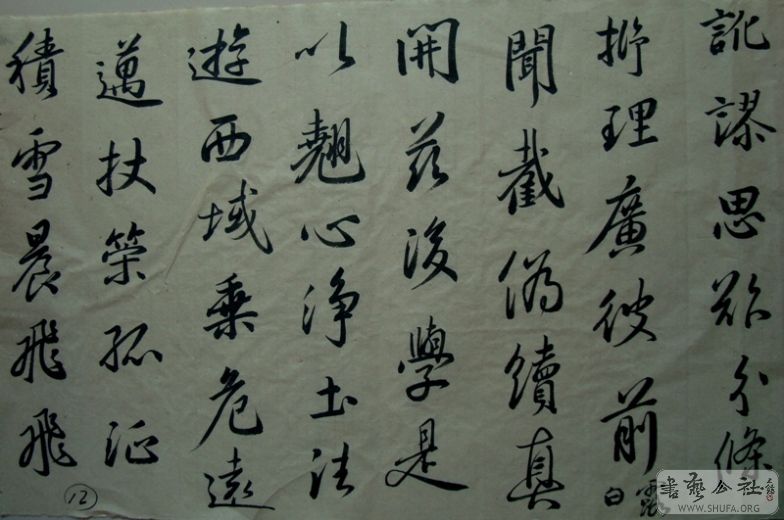 訛謬思欲分條
析理廣彼前
聞截偽續真
開茲後學是
以翹心淨土法
遊西域乘危遠
邁杖策孤征
積雪晨飛飛
12
白
書藝公社
WWW.SHUFA.ORG